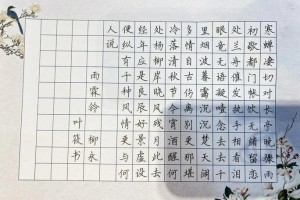 寒蝉凄切对长亭晚骤雨
初歇都门帐饮无绪留恋
处兰舟催发执手相看泪
眼竟无语凝噎念去去千
里烟波暮霭沉沉楚天阔
多情自古伤离别更那堪
冷落清秋节今宵酒醒何
处杨柳岸晓风残月此去
经年应是良辰好景虚设
便纵有千种风情更与何
人说
雨霖铃
柳永
叶筱书